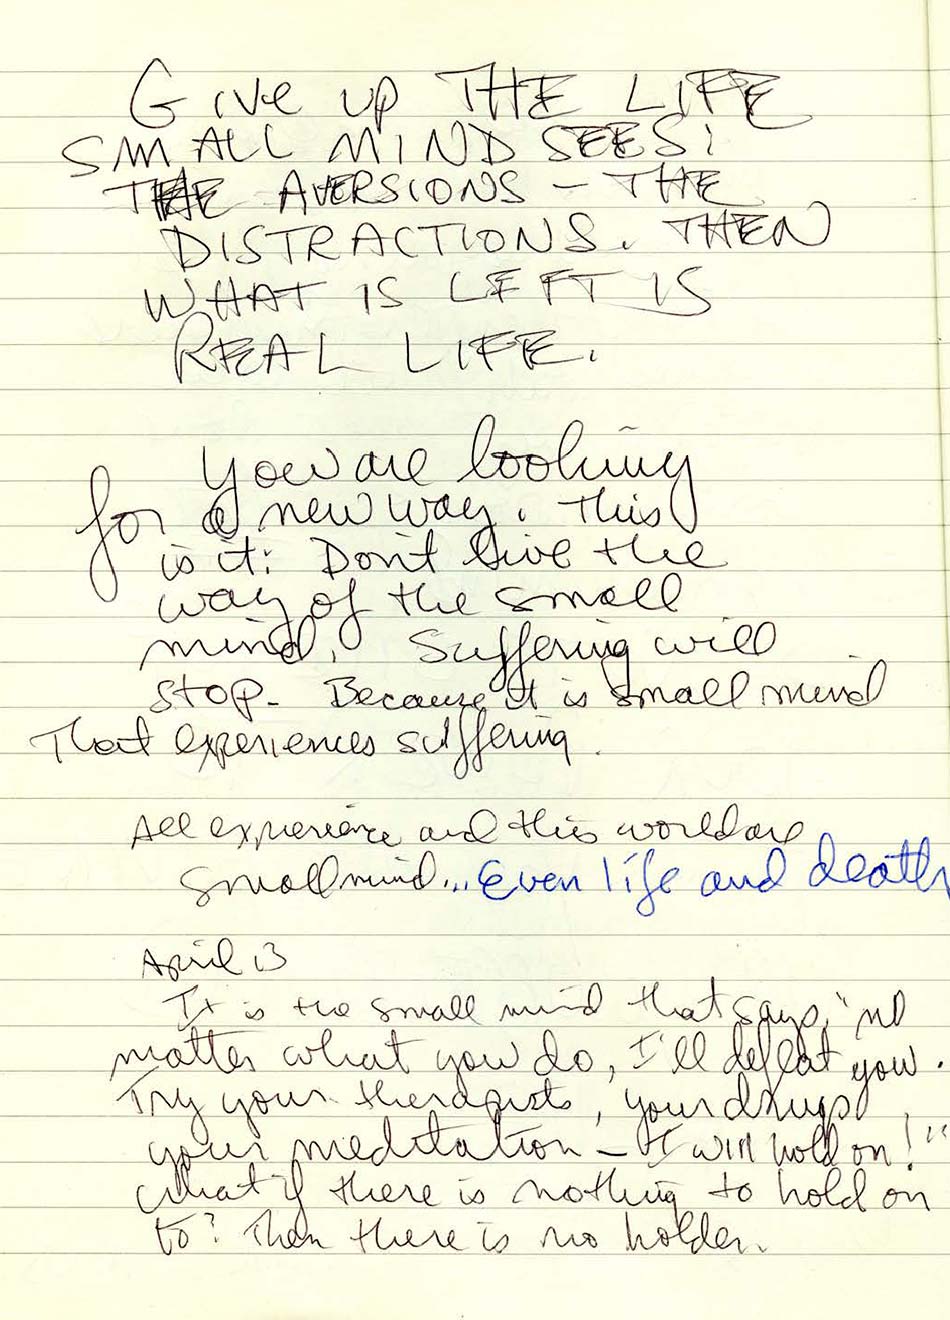 Give up THE LIFE
SMALL MIND SEES:
THE AVERSIONS – THE
DISTRACTIONS. THEN
WHAT IS LEFT IS
REAL LIFE.
You are looking
for a new way. This
is it: Don't live the
way of the small
mind. Suffering will
stop. Because it is small mind
That experiences suffering.
All experience and this world are
small mind... Even life and death
April 13
It is the small mind that says, "no
matter what you do, I'll defeat you.
Try your therapists, your drugs,
your meditation – I will hold on!"
What if there is nothing to hold on
to? Then there is no holder.